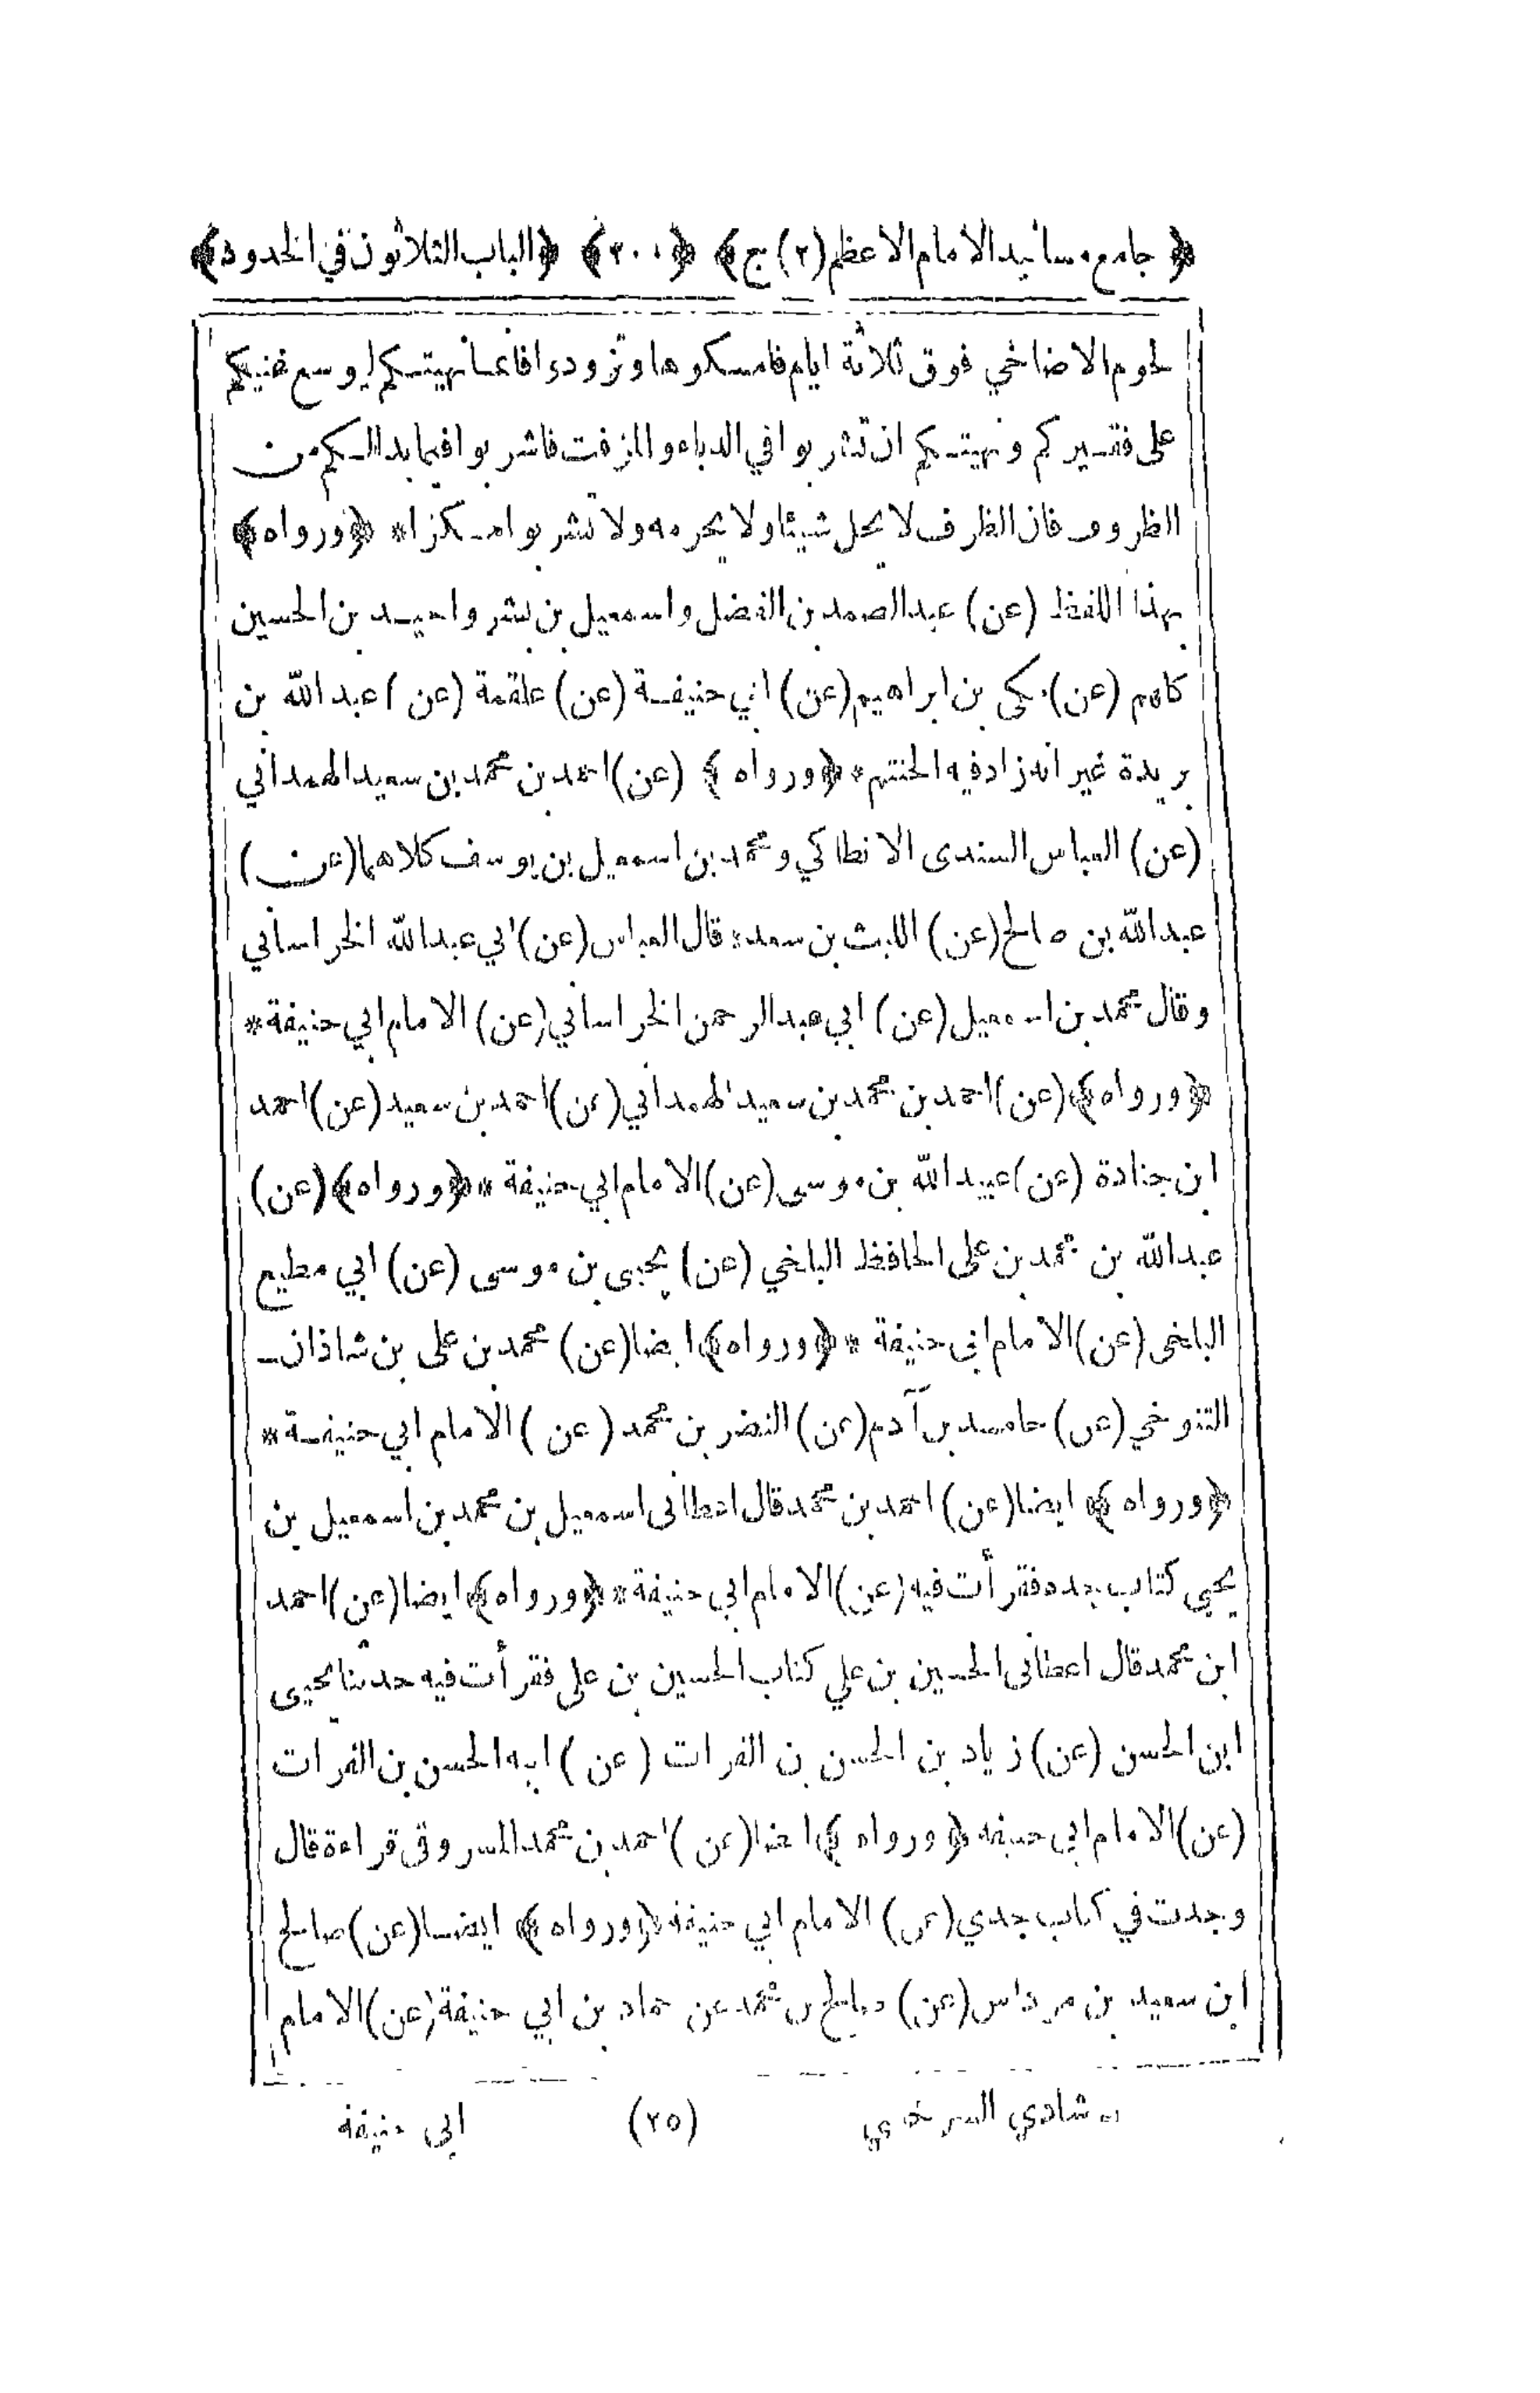 ﴿ جامع مسانيد الامام الاعظم (٢) ج ﴾ ﴿٢٠٠﴾ ﴿ الباب الثلاثون في الحدود ﴾
لحوم الاضاحي فوق ثلاثة ايام فامسكوها وتزودوا فانما نهيتكم ليوسع غنيكم
على فقيركم ونهيتكم ان تشربوا في الدباء والمزفت فاشربوا فيما بدا لكم من
الظروف فان الظرف لا يحل شيئا ولا يحرمه ولا تشربوا مسكرا * ﴿ ورواه ﴾
بهذا اللفظ (عن) عبد الصمد بن الفضل واسمعيل بن بشر واحيد بن الحسين
كلهم (عن) مكي بن ابراهيم (عن) ابي حنيفة (عن) علقمة (عن) عبد الله بن
بريدة غير انه زاد فيه الحنتم * ﴿ ورواه ﴾ (عن) احمد بن محمد بن سعيد الهمداني
(عن) العباس السندى الانطاكي ومحمد بن اسمعيل بن يوسف كلاهما (عن)
عبد الله بن صالح (عن) الليث بن سعد * قال العباس (عن) ابي عبد الله الخراساني
وقال محمد بن اسمعيل (عن) ابي عبد الرحمن الخراساني (عن) الامام ابي حنيفة *
﴿ ورواه ﴾ (عن) احمد بن محمد بن سعيد الهمداني (عن) احمد بن سعيد (عن) احمد
ابن جنادة (عن) عبيد الله بن موسى (عن) الامام ابي حنيفة * ﴿ ورواه ﴾ (عن)
عبد الله بن محمد بن على الحافظ البلخي (عن) يحيى بن موسى (عن) ابي مطيع
البلخى (عن) الامام ابى حنيفة * ﴿ ورواه ﴾ ايضا (عن) محمد بن على بن شاذان
التنوخي (عن) حامد بن آدم (عن) النضر بن محمد (عن) الامام ابي حنيفة *
﴿ ورواه ﴾ ايضا (عن) احمد بن محمد قال اعطانى اسمعيل بن محمد بن اسمعيل بن
يحيى كتاب جده فقرأت فيه (عن) الامام ابى حنيفة * ﴿ ورواه ﴾ ايضا (عن) احمد
ابن محمد قال اعطانى الحسين بن علي كتاب الحسين بن على فقرأت فيه حدثنا يحيى
ابن الحسن (عن) زياد بن الحسن بن الفرات (عن) ابيه الحسن بن الفرات
(عن) الامام ابى حنيفه ﴿ ورواه ﴾ ايضا (عن) احمد بن محمد المسروقى قراءة قال
وجدت في كتاب جدي (عن) الامام ابي حنيفة ﴿ ورواه ﴾ ايضا (عن) صالح
ابن سعيد بن مرداس (عن) صالح بن محمد عن حماد بن ابي حنيفة (عن) الامام
شادي السرخسي (٢٥) ابى حنيفة